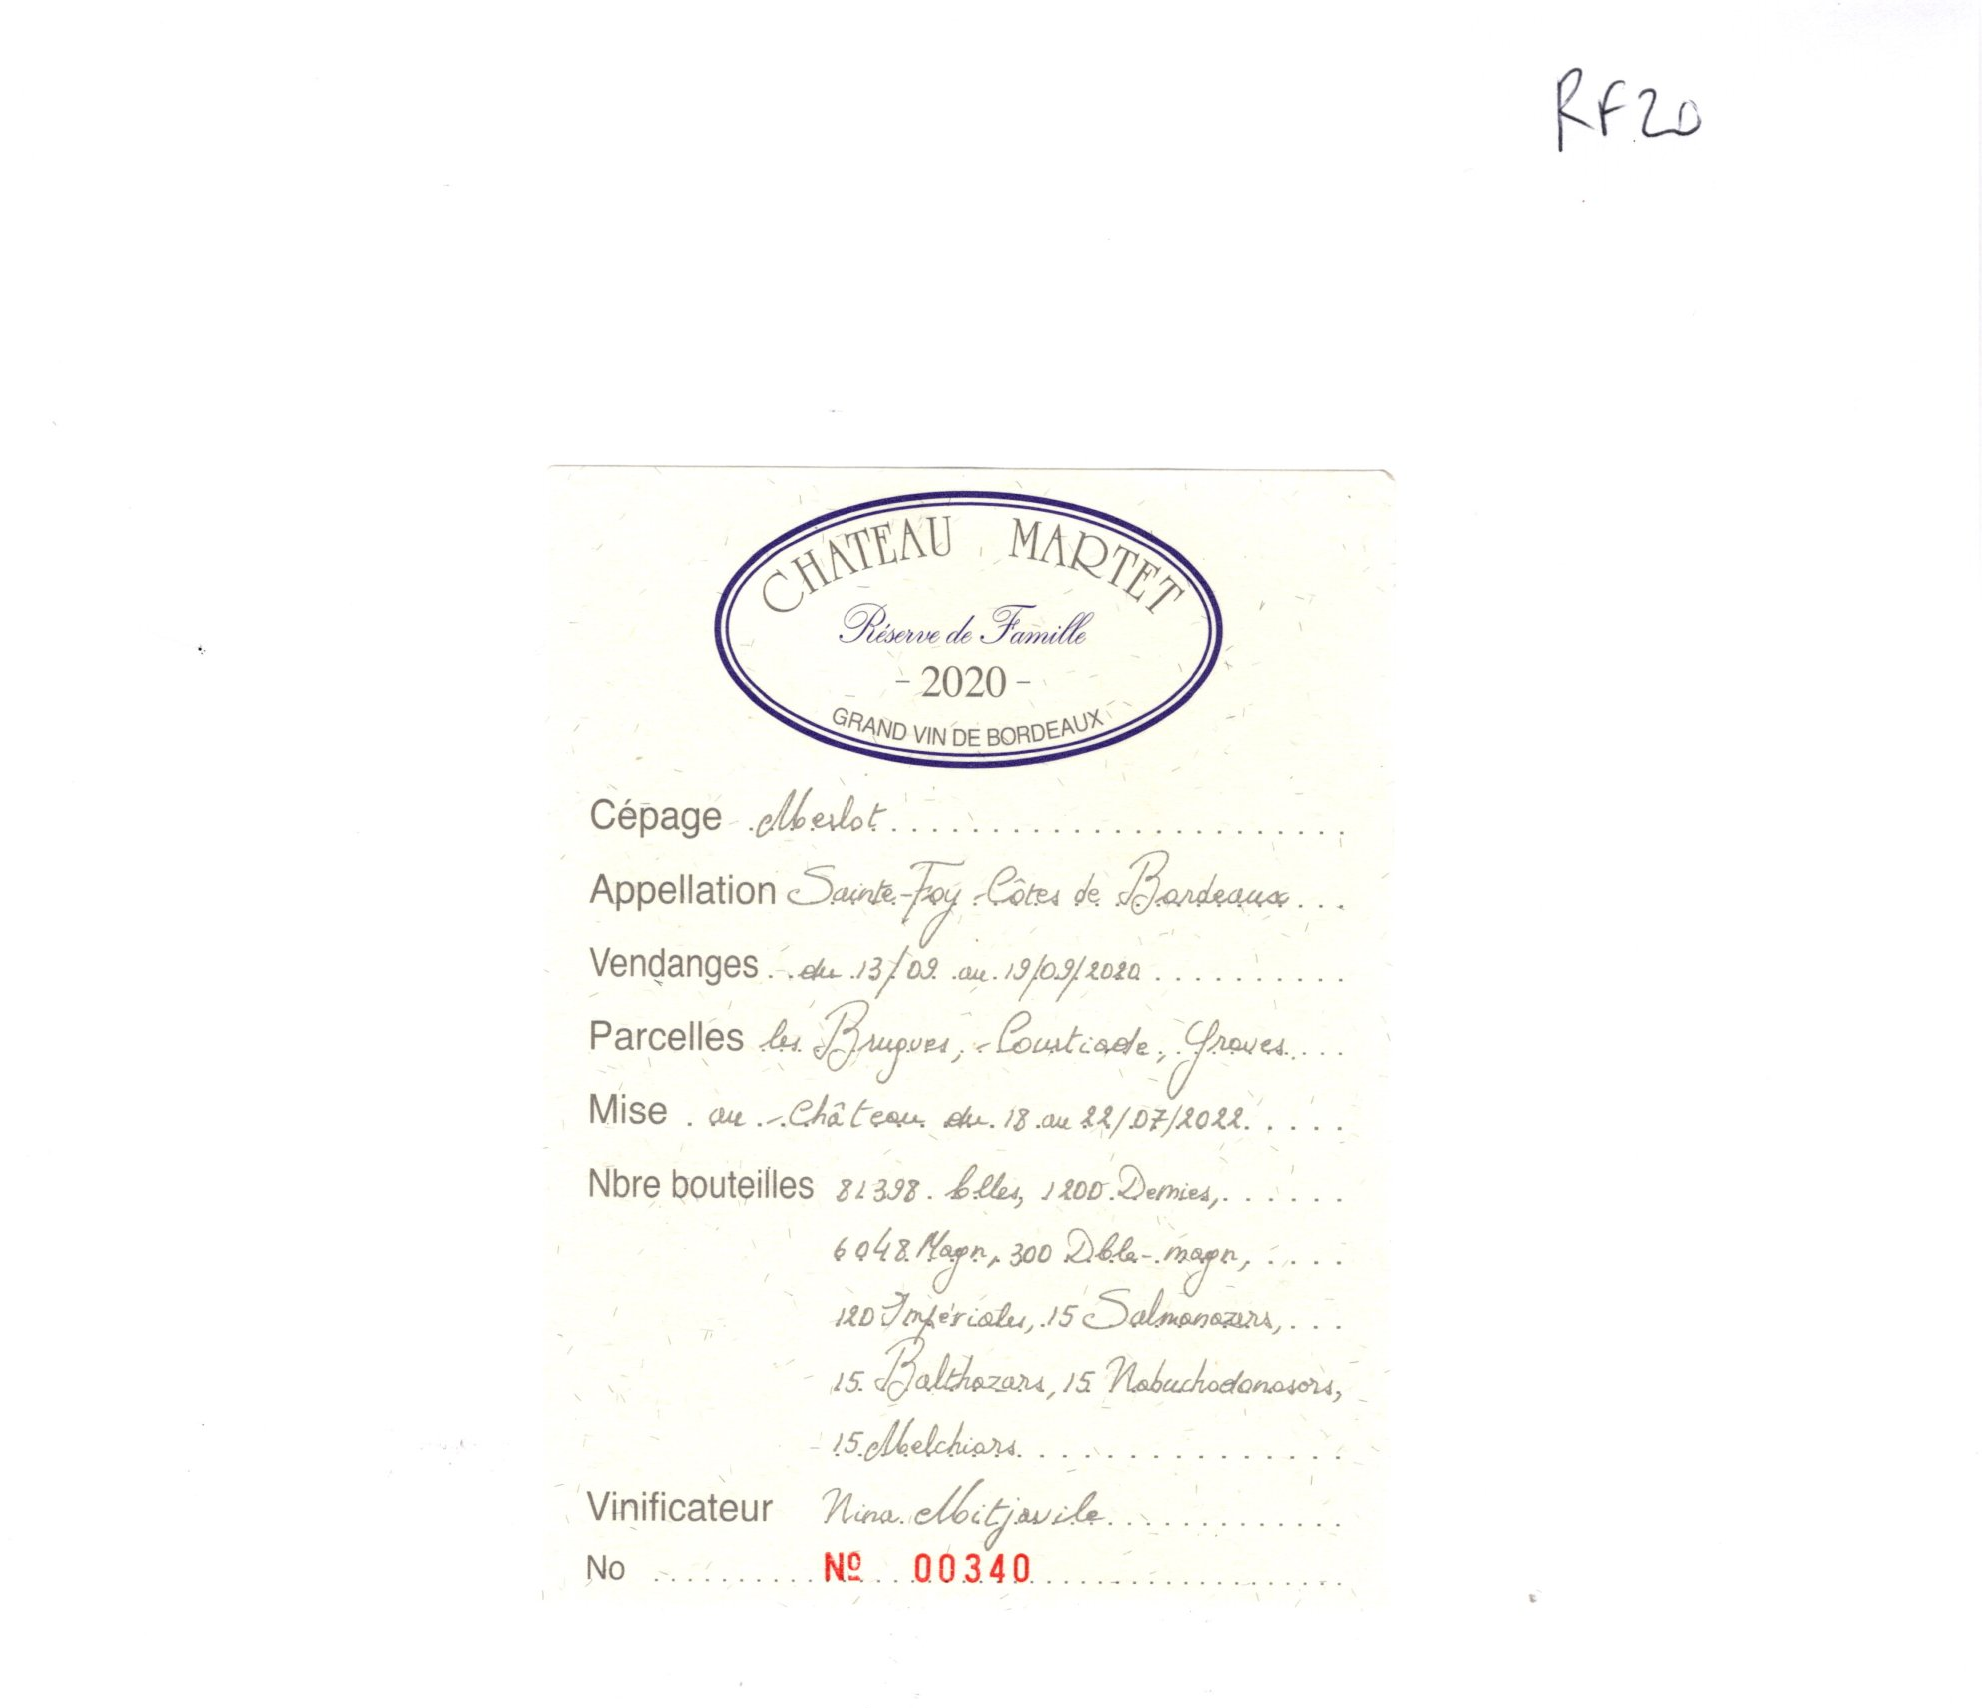 RF20
CHATEAU MARTET
Réserve de Famille
- 2020 -
GRAND VIN DE BORDEAUX
Cépage Merlot
Appellation Sainte-Foy Côtes de Bordeaux
Vendanges du 13/09 au 19/09/2020
Parcelles les Brugues, Coustiade, Graves
Mise au Château du 18 au 22/07/2022
Nbre bouteilles 81398 blles, 1200 Demies,
6048 Magn, 300 Dble-magn,
120 Impériales, 15 Salmanazars,
15 Balthazars, 15 Nabuchodonosors,
15 Melchiors
Vinificateur Nina Mitjavile
No Nº 00340